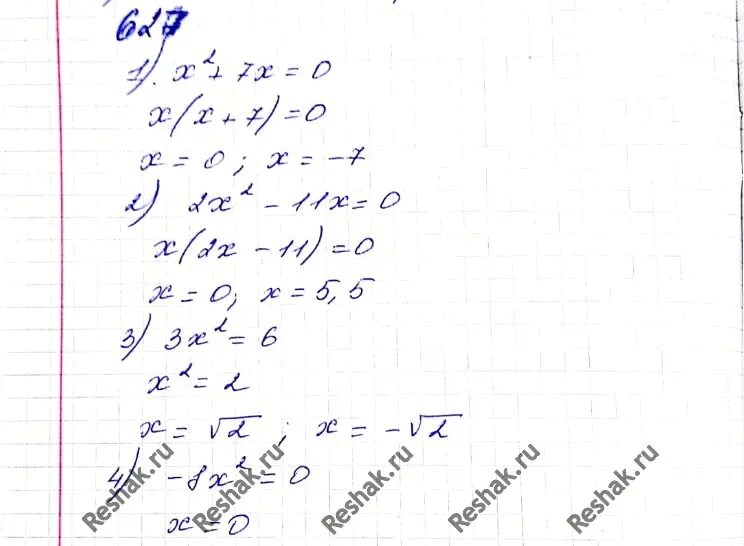 627
1). x² + 7x = 0
x(x + 7) = 0
x = 0; x = -7
2) 2x² - 11x = 0
x(2x - 11) = 0
x = 0; x = 5,5
3) 3x² = 6
x² = 2
x = √2; x = -√2
4) -8x² = 0
x = 0
Reshak.ru Reshak.ru Reshak.ru Reshak.ru Reshak.ru